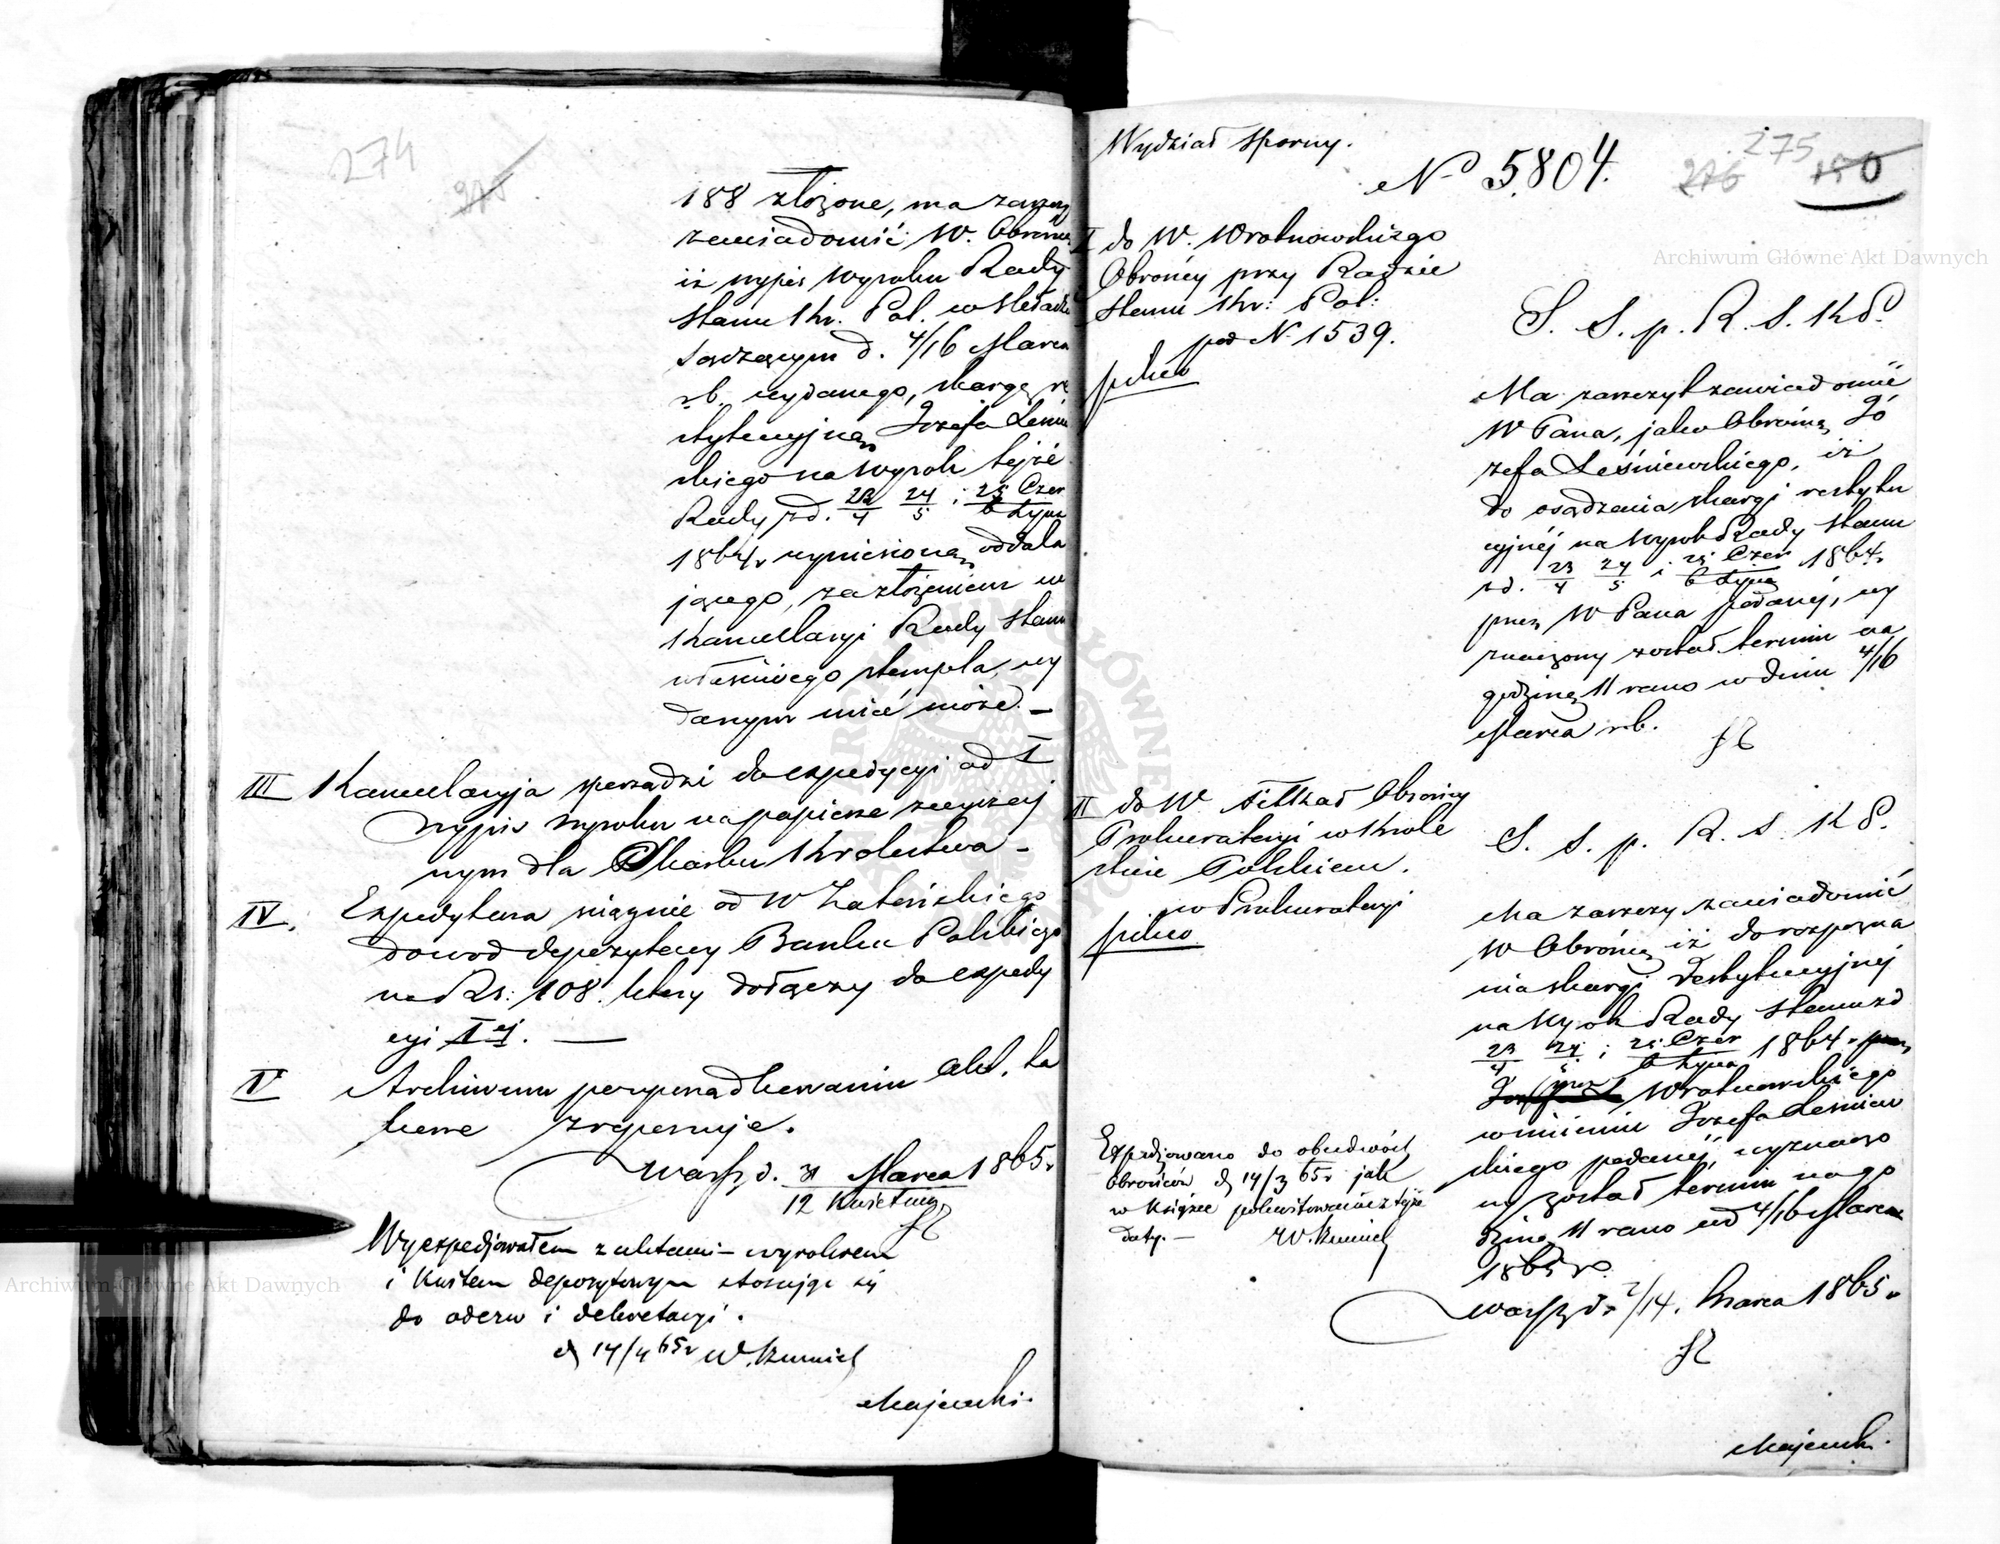 274
188 złożone, ma zaszczyt
zawiadomić W. Obrońcę
iż wypis wyroku Rady
Stanu Kr. Pol. w Składzie
Sądzącym d. 4/16 Marca
r.b. wydanego, skargę re
stytucyjną Józefa Leśniew
skiego na wyrok tejże
Rady z d. 23/4 24/5 i 25 Czer/6 Lipca
1864 r. wyniesioną oddala
jącego, za złożeniem w
Kancellaryi Rady Stanu
właściwego stempla, wy
danym mieć może. —
III Kancellaryja sporządzi do expedycyi ad I
wypis wyroku na papierze zwyczaj
nym dla Skarbu Królestwa —
IV. Expedytura ściągnie od W Zaleńskiego
dowod depozytowy Banku Polskiego
na Rs: 108. który dołączy do expedy
cyi I ej. —
V Archiwum po uporządkowaniu akt, ta
kowe zreponuje.
Warsz. d. 31 Marca/12 Kwietnia 1865 r.
Wyexpedjowałem z aktami — wyrokiem
i kwitem depozytowym stosując się
do odezw i dekretacyi.
d 14/4 65 r W. Kumiel
Majewski.
Wydział Sporny.
N° 5804.
275
276
150
Archiwum Główne Akt Dawnych
I do W. Wrotnowskiego
Obrońcy przy Radzie
Stanu Kr: Pol:
pod N. 1539.
pilno
S. S. p. R. S. K P.
Ma zaszczyt zawiadomić
W Pana, jako Obrońcę Jó
zefa Leśniewskiego, iż
do osądzenia skargi restytu
cyjnéj na wyrok Rady Stanu
z d. 23/4 24/5 i 25 Czer/6 Lipca 1864 r.
przez W Pana podanéj, wy
znaczony został termin na
godzinę 11 rano w dniu 4/16
Marca r.b.
II do W. Obrońcy
Prokuratoryi w Króle
stwie Polskiem.
w Prokuratoryi
pilno
S. S. p. R. S. K P.
Ma zaszczyt zawiadomić
W Obrońcę iż do rozpozna
nia skargi restytucyjnéj
na Wyrok Rady Stanu z d
23/4 24/5 i 25 Czer/6 Lipca 1864 r.
przez Wrotnowskiego
w imieniu Józefa Leśniew
skiego podanéj, wyznaczo
ny został termin na go
dzinę 11 rano na d 4/16 Marca
1865 r.
Warsz. d. 2/14. Marca 1865 r
Expedjowano do obudwóch
Obrońców d 14/3 65 r jak
w książce pokwitowanie z tejże
daty. — W. Kumiel
Majewski.
Archiwum Główne Akt Dawnych